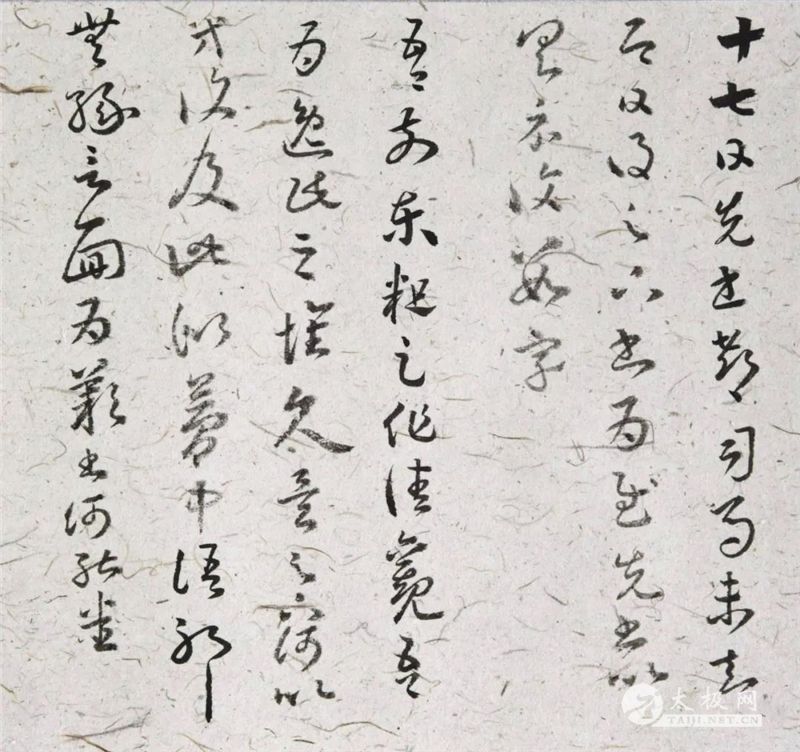 十七日先書郗司馬未去
即日得足下書為慰先書以
具示復數字
吾前東粗足作佳觀吾
為逸民之懷久矣足下何以
方復及此似夢中語耶
無緣言面為歎書何能悉
太极网
TAIJI.NET.CN